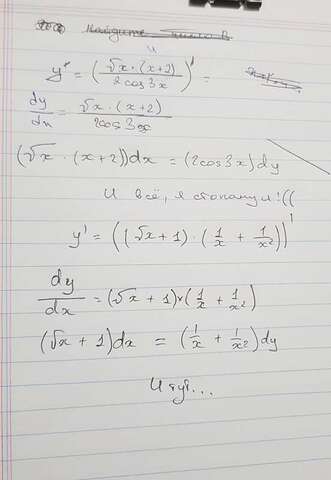 Найдите
y' = (√x · (x+2) / 2cos3x)' =
dy/dx = √x · (x+2) / 2cos3x
(√x · (x+2))dx = (2cos3x)dy
И всё, я стопанул!((
y' = ((√x + 1) · (1/x + 1/x²))'
dy/dx = (√x + 1) · (1/x + 1/x²)
(√x + 1)dx = (1/x + 1/x²)dy
И тут...